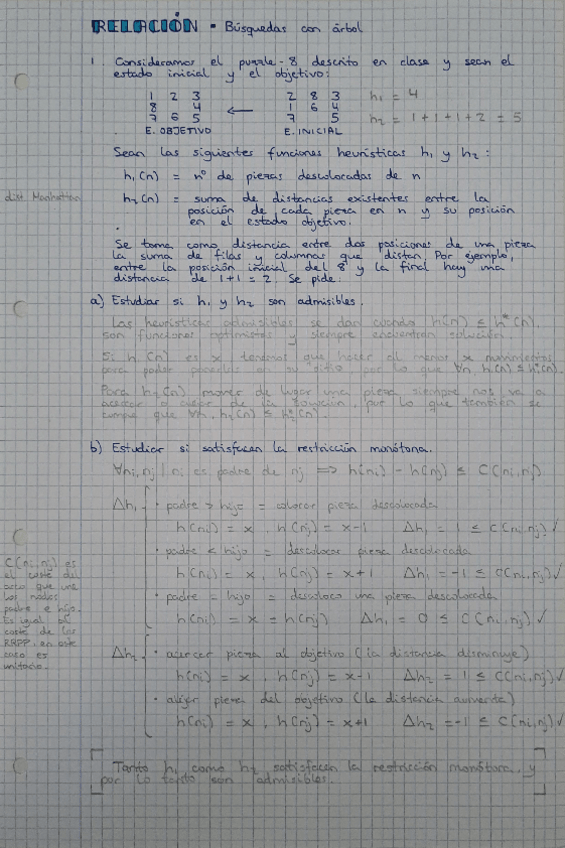 RELACIÓN - Búsquedas con árbol
1. Consideramos el puzzle-8 descrito en clase y sean el
estado inicial y el objetivo:
1 2 3
8 4
7 6 5
E. OBJETIVO
←
2 8 3
1 6 4
7 5
E. INICIAL
h₁ = 4
h₂ = 1+1+1+2 = 5
Sean las siguientes funciones heurísticas h₁ y h₂:
h₁(n) = nº de piezas descolocadas de n
dist. Manhattan
h₂(n) = suma de distancias existentes entre la
posición de cada pieza en n y su posición
en el estado objetivo.
Se toma como distancia entre dos posiciones de una pieza
la suma de filas y columnas que distan. Por ejemplo,
entre la posición inicial del 8 y la final hay una
distancia de 1+1 = 2. Se pide:
a) Estudiar si h₁ y h₂ son admisibles.
Las heurísticas admisibles se dan cuando h(n) ≤ h*(n),
son funciones optimistas y siempre encuentran solución.
Si h₁(n) es x tenemos que hacer al menos x movimientos
para poder ponerlas a su sitio por lo que ∀n, h₁(n) ≤ h*(n).
Para h₂(n) mover de lugar una pieza siempre nos va a
acercar o alejar de la solución, por lo que también se
cumple que ∀n, h₂(n) ≤ h*(n)
b) Estudiar si satisfacen la restricción monótona.
∀ni,nj | ni es padre de nj ⟹ h(ni) - h(nj) ≤ C(ni,nj)
Δh₁
· padre > hijo = colocar pieza descolocada
h(ni) = x, h(nj) = x-1 Δh₁ = 1 ≤ C(ni,nj) ✓
· padre < hijo = descolocar pieza descolocada
h(ni) = x, h(nj) = x+1 Δh₁ = -1 ≤ C(ni,nj) ✓
· padre = hijo = descoloco una pieza descolocada
h(ni) = x = h(nj) Δh₁ = 0 ≤ C(ni,nj) ✓
C(ni,nj) es
el coste del
arco que une
los nodos
padre e hijo.
Es igual al
coste de las
RRPP, en este
caso es
unitario.
Δh₂
· acercar pieza al objetivo (la distancia disminuye)
h(ni) = x, h(nj) = x-1 Δh₂ = 1 ≤ C(ni,nj) ✓
· alejar pieza del objetivo (la distancia aumenta)
h(ni) = x, h(nj) = x+1 Δh₂ = -1 ≤ C(ni,nj) ✓
Tanto h₁ como h₂ satisfacen la restricción monótona, y
por lo tanto son admisibles.